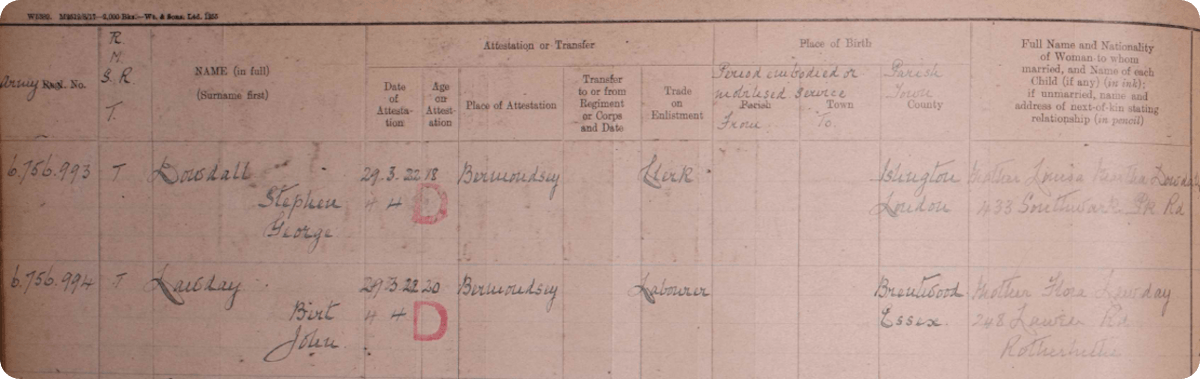 W5392. M2512/8/17—2,000 Bks.—Wt. & Sons. Ltd.
R.
M.
Army Regtl. No.
S. R
T.
NAME (in full)
(Surname first)
Attestation or Transfer
Date of Attesta-tion
Age on Attest-ation
Place of Attestation
Transfer to or from Regiment or Corps and Date
Trade on Enlistment
Place of Birth
Period embodied or
mobilised service
Parish
Town
From
To.
Parish
Town
County
Full Name and Nationality
of Woman to whom
married, and Name of each
Child (if any) (in ink);
if unmarried, name and
address of next-of-kin stating
relationship (in pencil)
6.756.993 T Dowdall 29.3.22 18 Bermondsey Clerk Islington Mother Louisa Martha Dowdall
Stephen 4 4 D London 433 Southwark Pk Rd
George
6.756.994 T Lawday 29.3.22 20 Bermondsey Labourer Brentwood Mother Flora Lawday
Birt 4 4 D Essex. 248 Rd
John Rotherhithe